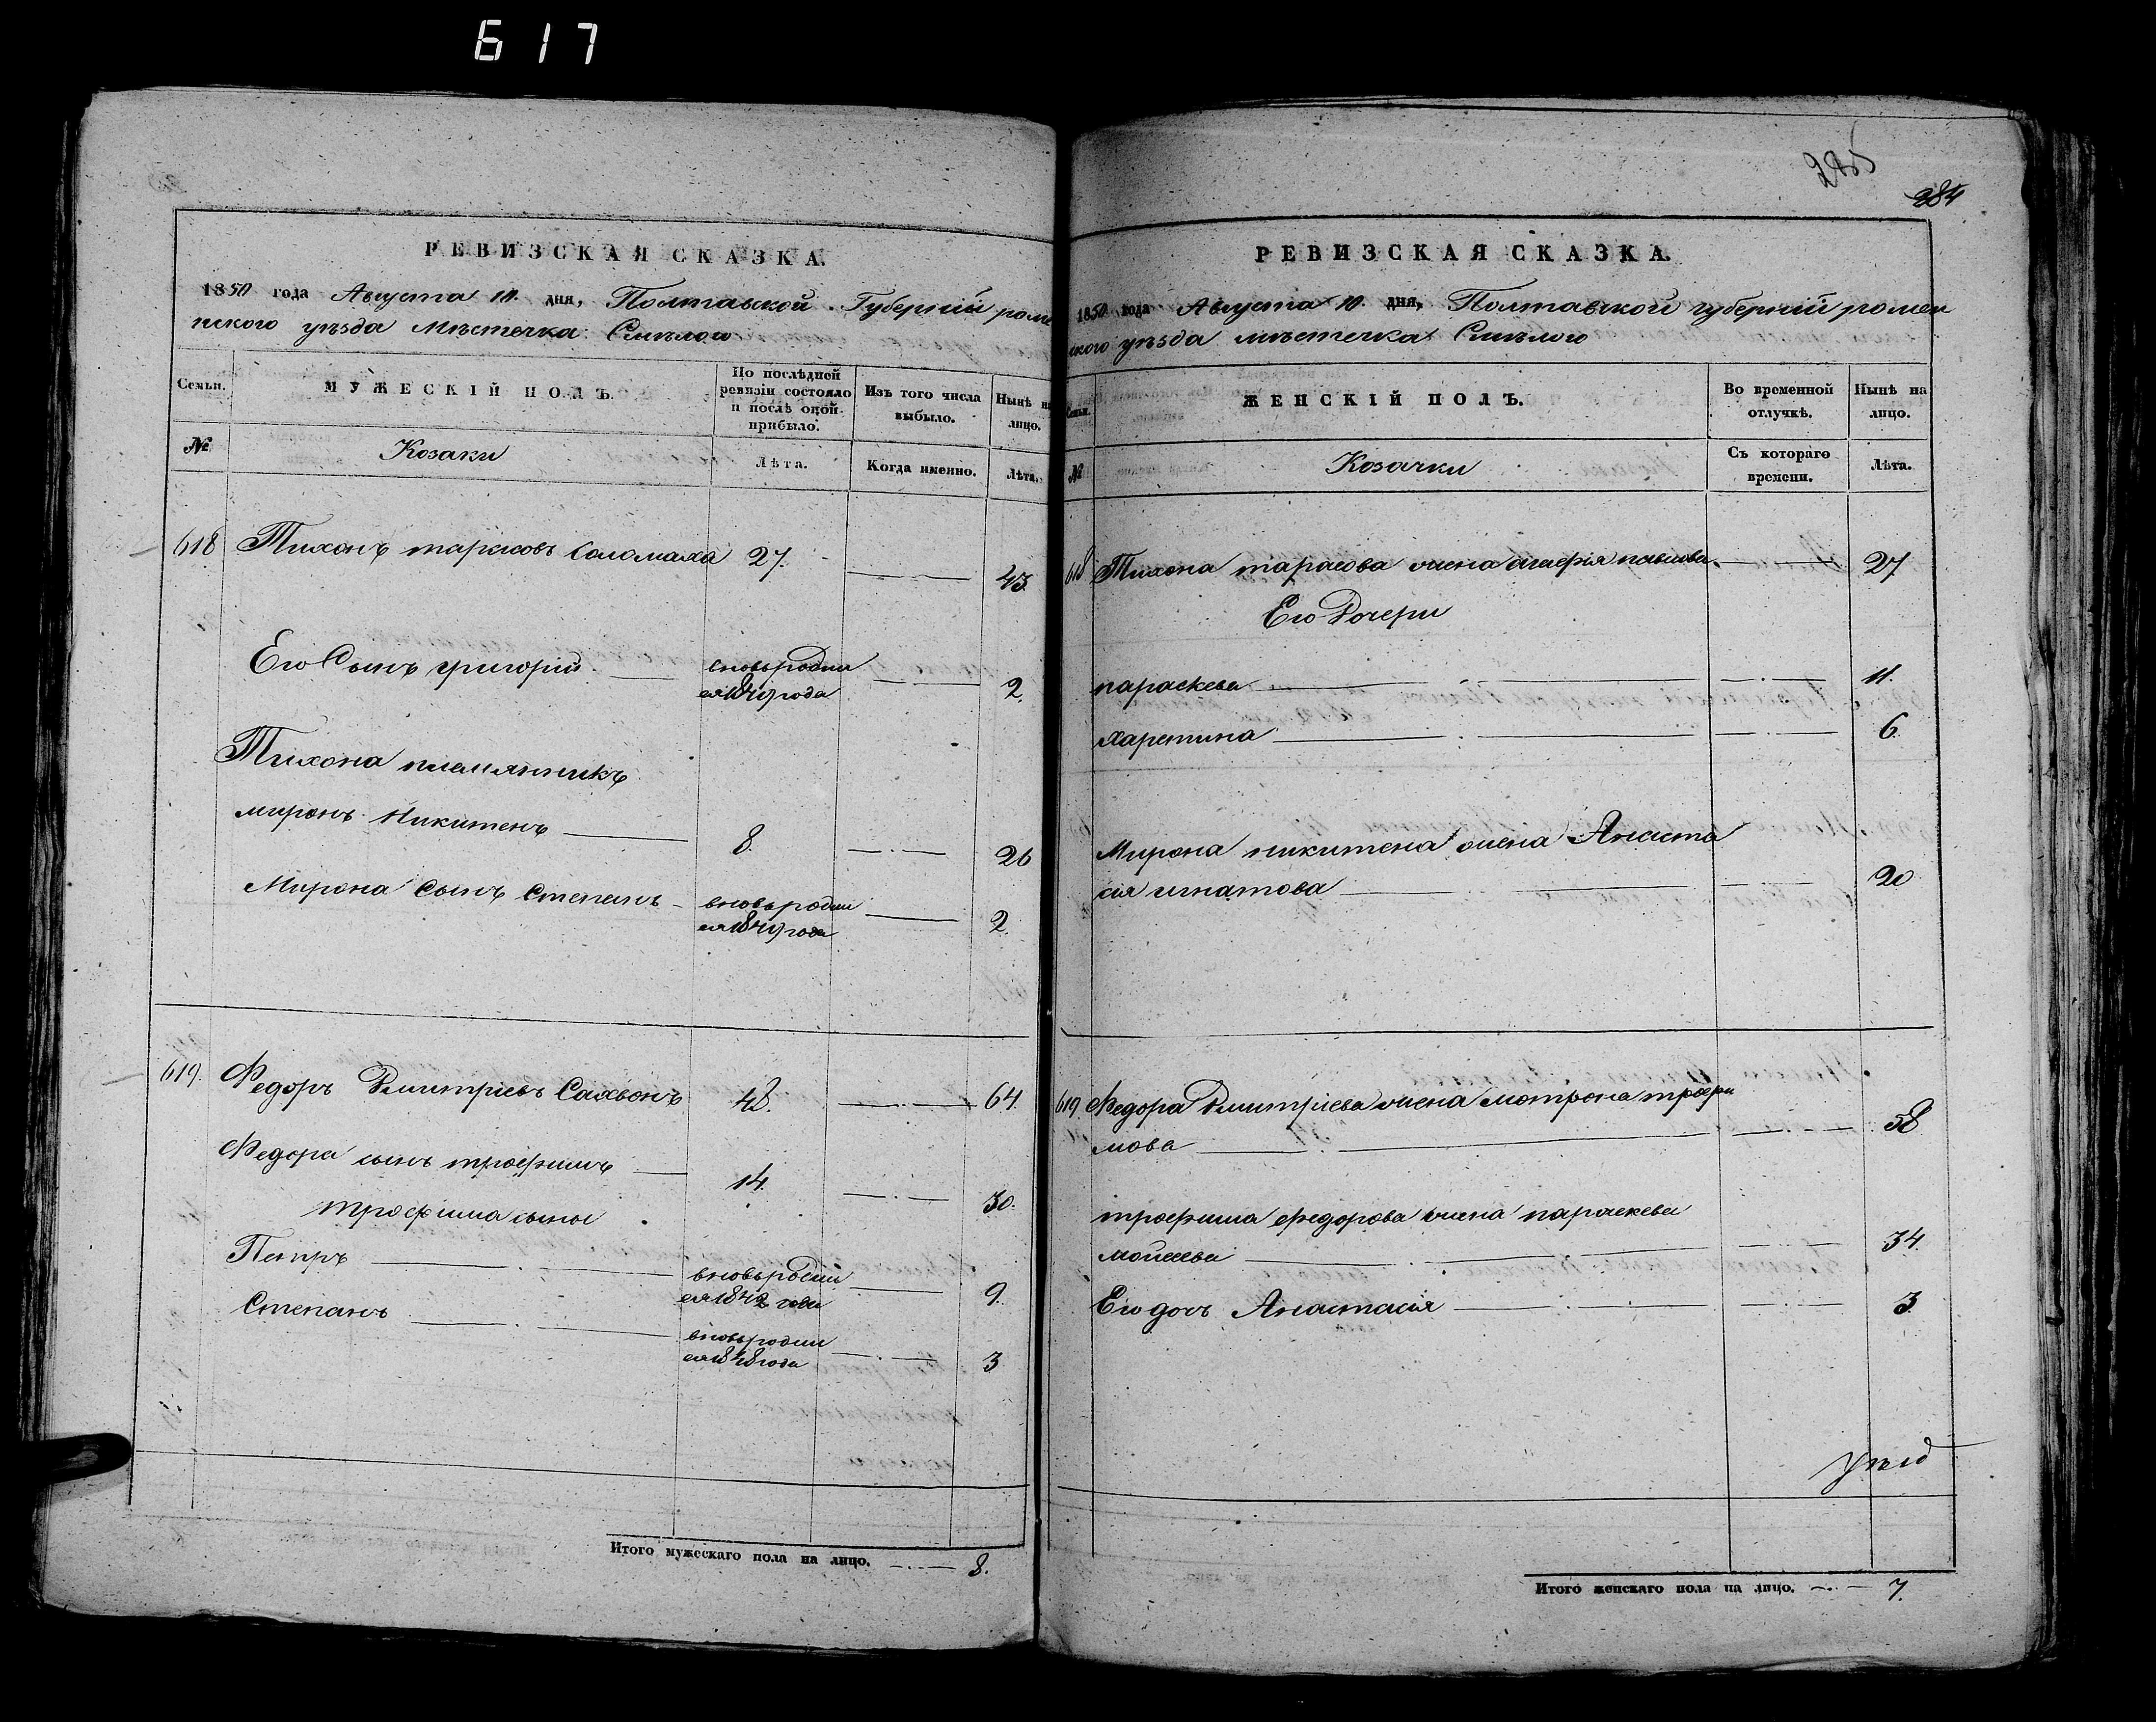 617
285
284
РЕВИЗСКАЯ СКАЗКА.
1850 года Августа 10. дня, Полтавской Губерніи роме
нского уѣзда Мѣстечка Смѣлого
Семьи.
МУЖЕСКІЙ ПОЛЪ.
По послѣдней ревизіи состояло и послѣ оной прибыло.
Изъ того числа выбыло.
Нынѣ на лицо.
№
Козаки
Лѣта.
Когда именно.
Лѣта.
618 Тихонъ тарасовъ Соломаха 27. 43
Его Сынъ григорій вновь родил
ся 1849 года 2.
Тихона племянникъ
миронъ Никитенъ 8. 26
Мирона Сынъ Степанъ вновь родил
ся 1849 года 2.
619. Федоръ Дмитріевъ 48. 64.
Федора сынъ трофимъ 14. 30.
трофима сыны
Петръ вновь родил
ся 1842 года 9.
Степанъ вновь родил
ся 1848 года 3
Итого мужескаго пола на лицо. 8.
РЕВИЗСКАЯ СКАЗКА.
1850 года Августа 10. дня, Полтавской губерніи ромен
ского уѣзда мѣстечка Смѣлого
Семьи.
ЖЕНСКІЙ ПОЛЪ.
Во временной отлучкѣ.
Нынѣ на лицо.
№
Козачки
Съ котораго времени.
Лѣта.
618 Тихона тарасова жена павлова 27
Его Дочери
параскева 11.
харетина 6.
Мирона никитена жена Анаста
сія игнатова 20
619 Федора Дмитріева жена мотрона трофи
мова 58
трофима федорова жена параскева
моисеева 34.
Его дочь Анастасія 3
Уѣзд
Итого женскаго пола на лицо. 7.